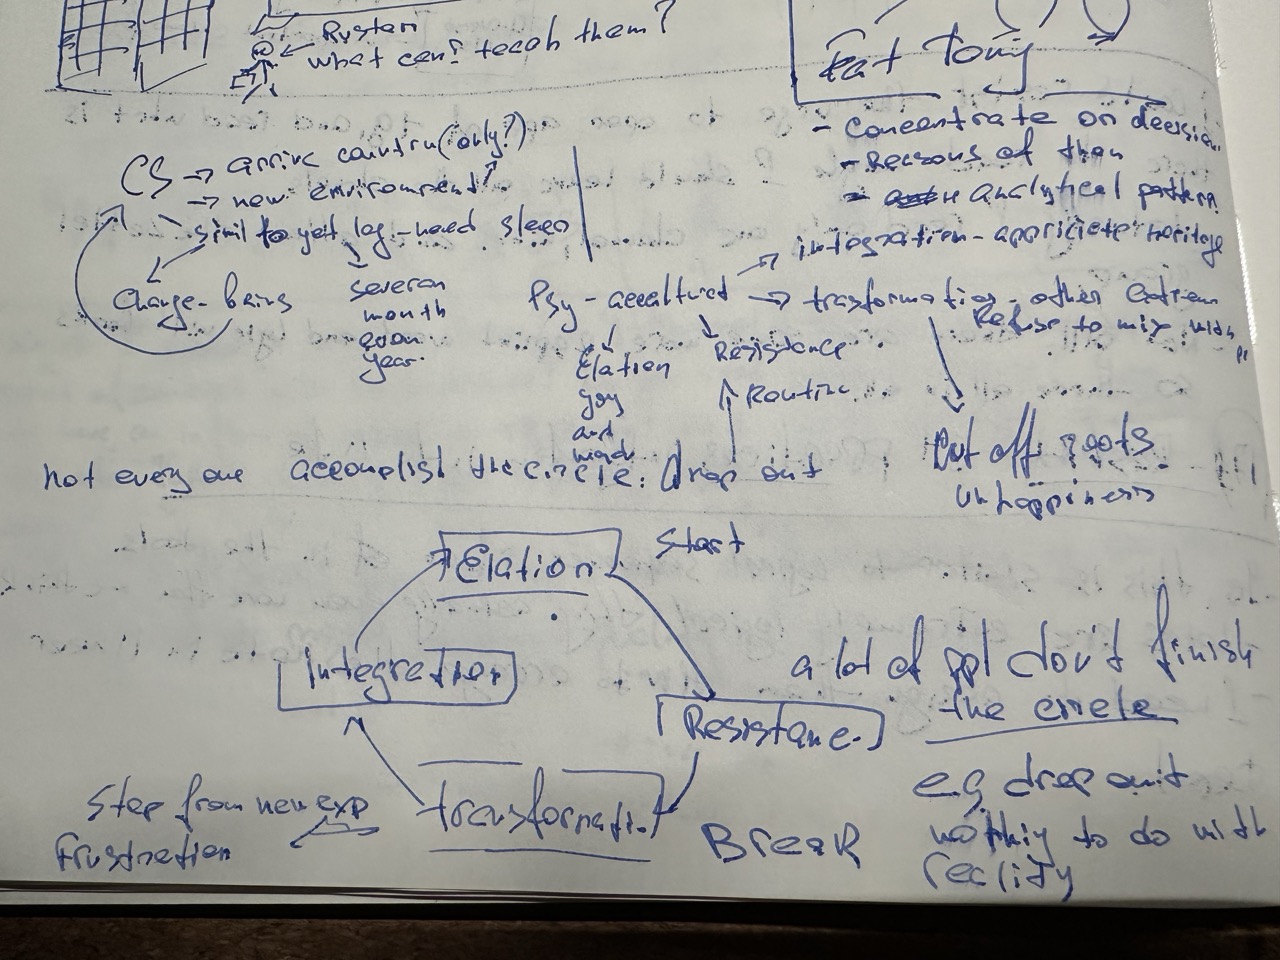 what can? teach them?
Fat Tony
- Concentrate on decision
- Reasons of than
- analytical pattern
CS → arrive countru (only?)
→ new enviroment
simil to yet lag - need sleep
Change - being
severan
month
evan
year.
Psy - accultured
→ integration - appriciete heritage
→ trasformation - other extrem
Refuse to mix with
Elation
joy
and
Resistance
Routine
Cut off roots
unhappiness
not every one accomplish the circle. drop out
Elation
Start
Integration
Resistance.
Transformation
Break
Step from new exp
frustration
a lot of ppl don't finish
the circle
eg drop out
nothiy to do with
reality